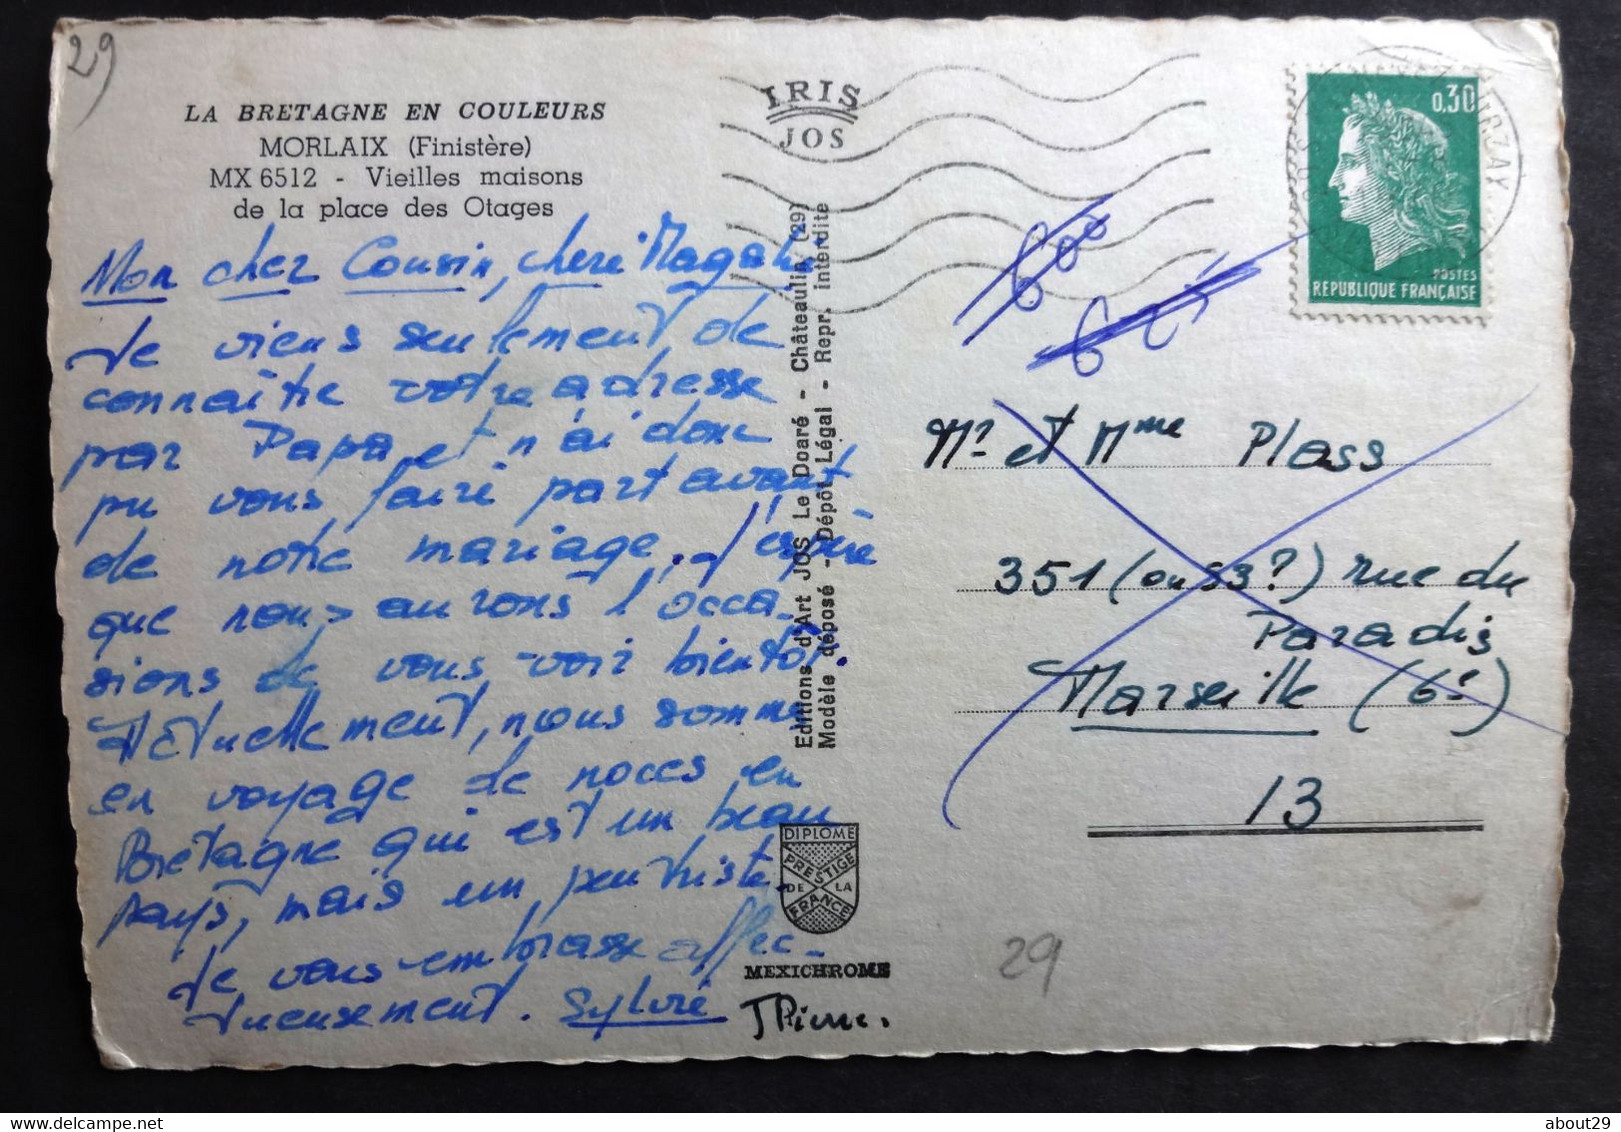 29
LA BRETAGNE EN COULEURS
MORLAIX (Finistère)
MX 6512 - Vieilles maisons
de la place des Otages
IRIS
JOS
0,30
POSTES
REPUBLIQUE FRANÇAISE
Mon cher Cousin, chere Magali,
Je viens seulement de
connaitre votre adresse
par Papa et n'ai donc
pu vous faire part avant
de notre mariage. J'espère
que nous aurons l'occa-
sions de vous voir bientôt.
Actuellement, nous sommes
en voyage de noces en
Bretagne qui est un beau
pays, mais un peu triste.
Je vous embrasse affec-
tueusement. Sylvie
JPierre.
Editions d'Art JOS Le Doaré - Châteaulin (29)
Modèle déposé - Dépôt Légal - Repr. interdite
DIPLOME
PRESTIGE
DE LA
FRANCE
MEXICHROME
Mr et Mme Plass
351 (ou 53?) rue du
Paradis
Marseille (6è)
13
29
about29